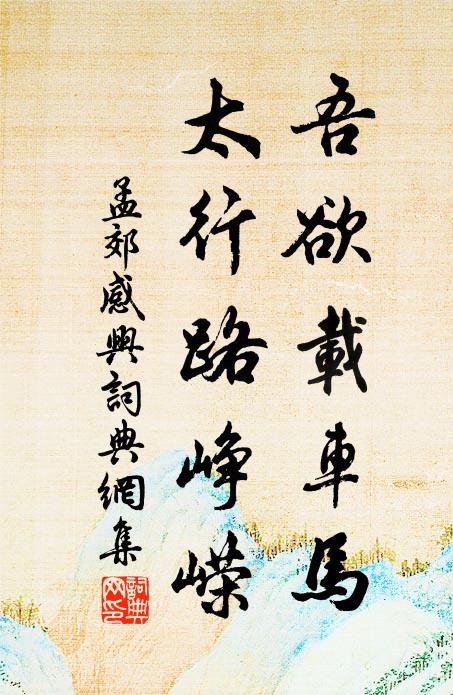 吾欲載車馬
太行路峥嶸
孟郊感興詞典網集